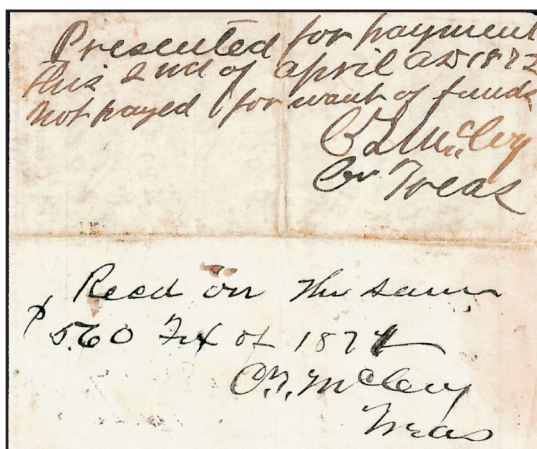 Presented for payment
this 2nd of april AD 1872
not payed for want of funds
Co Treas
Recd on the same
$5.60 Tx of 1874
Treas